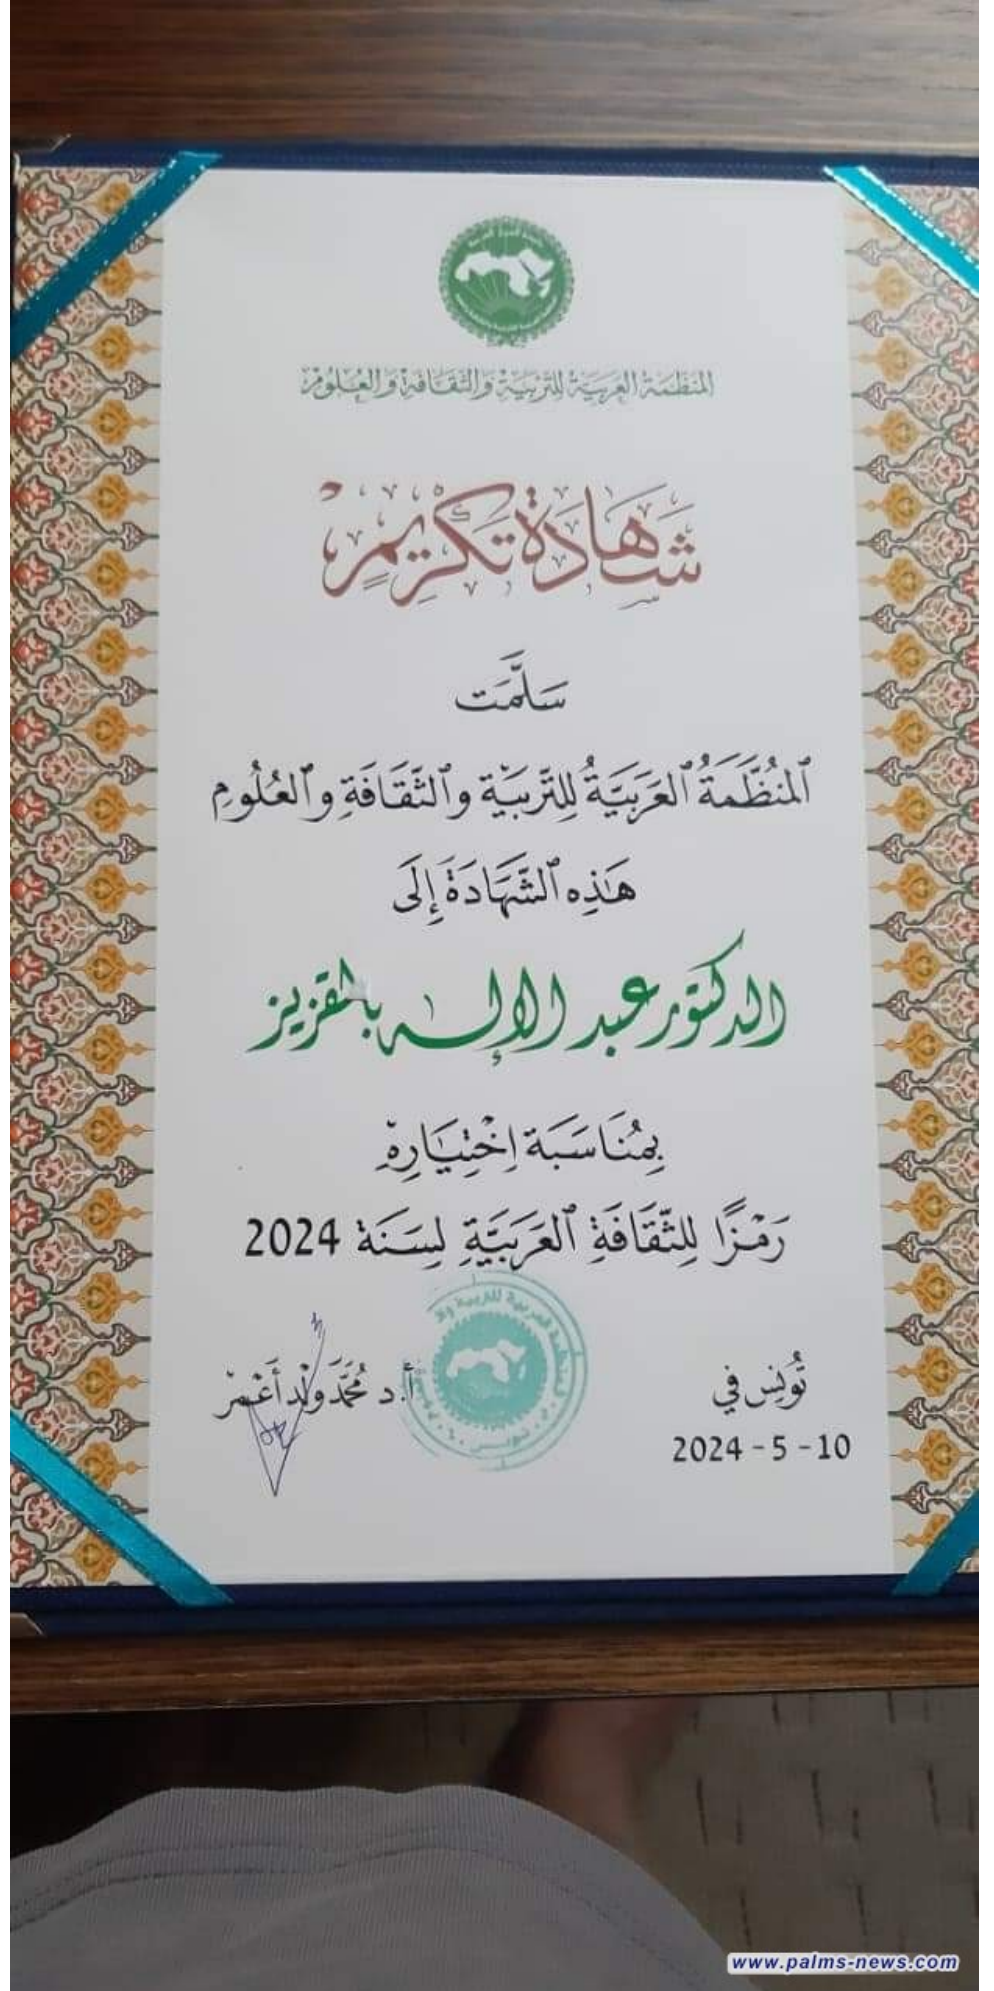 المنظمة العربية للتربية والثقافة والعلوم
شهادة تكريم
سَلَّمَت
اَلمُنَظَّمَةُ العَرَبَيَّةُ لِلتَّربَيَة والثَّقَافَةِ والعُلُومِ
هَذِه الشَّهَادَةَ إِلَى
الدكتور عبد الإله بالقزيز
بِمُنَاسَبَة اِخْتِيَارِهِ
رَمْزًا لِلثَّقَافَةِ العَرَبَيَّةِ لِسَنَة 2024
تُونِس في
أ. د مُحَمَّد ولْد أَعْمَر
10 - 5 - 2024
www.palms-news.com